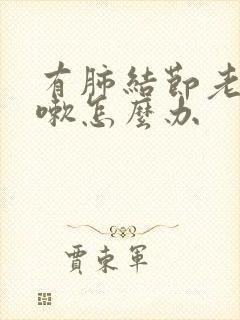 有肺結節老
嗽怎麼办
賈東軍